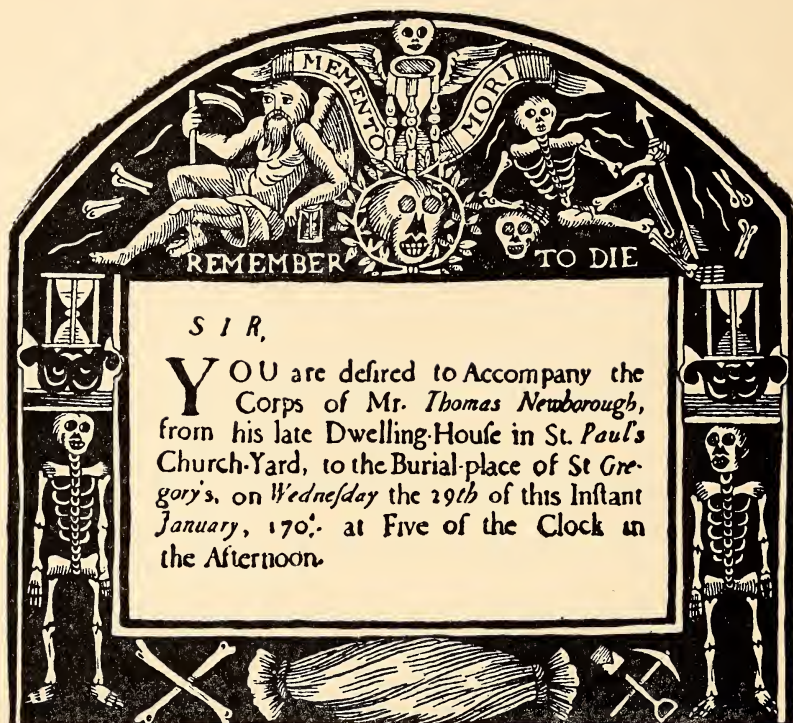 MEMENTO MORI
REMEMBER TO DIE
SIR,
YOU are deſired to Accompany the
Corps of Mr. Thomas Newborough,
from his late Dwelling-Houſe in St. Paul's
Church-Yard, to the Burial-place of St Gre-
gory's, on Wedneſday the 29th of this Inſtant
January, at Five of the Clock in
the Afternoon.